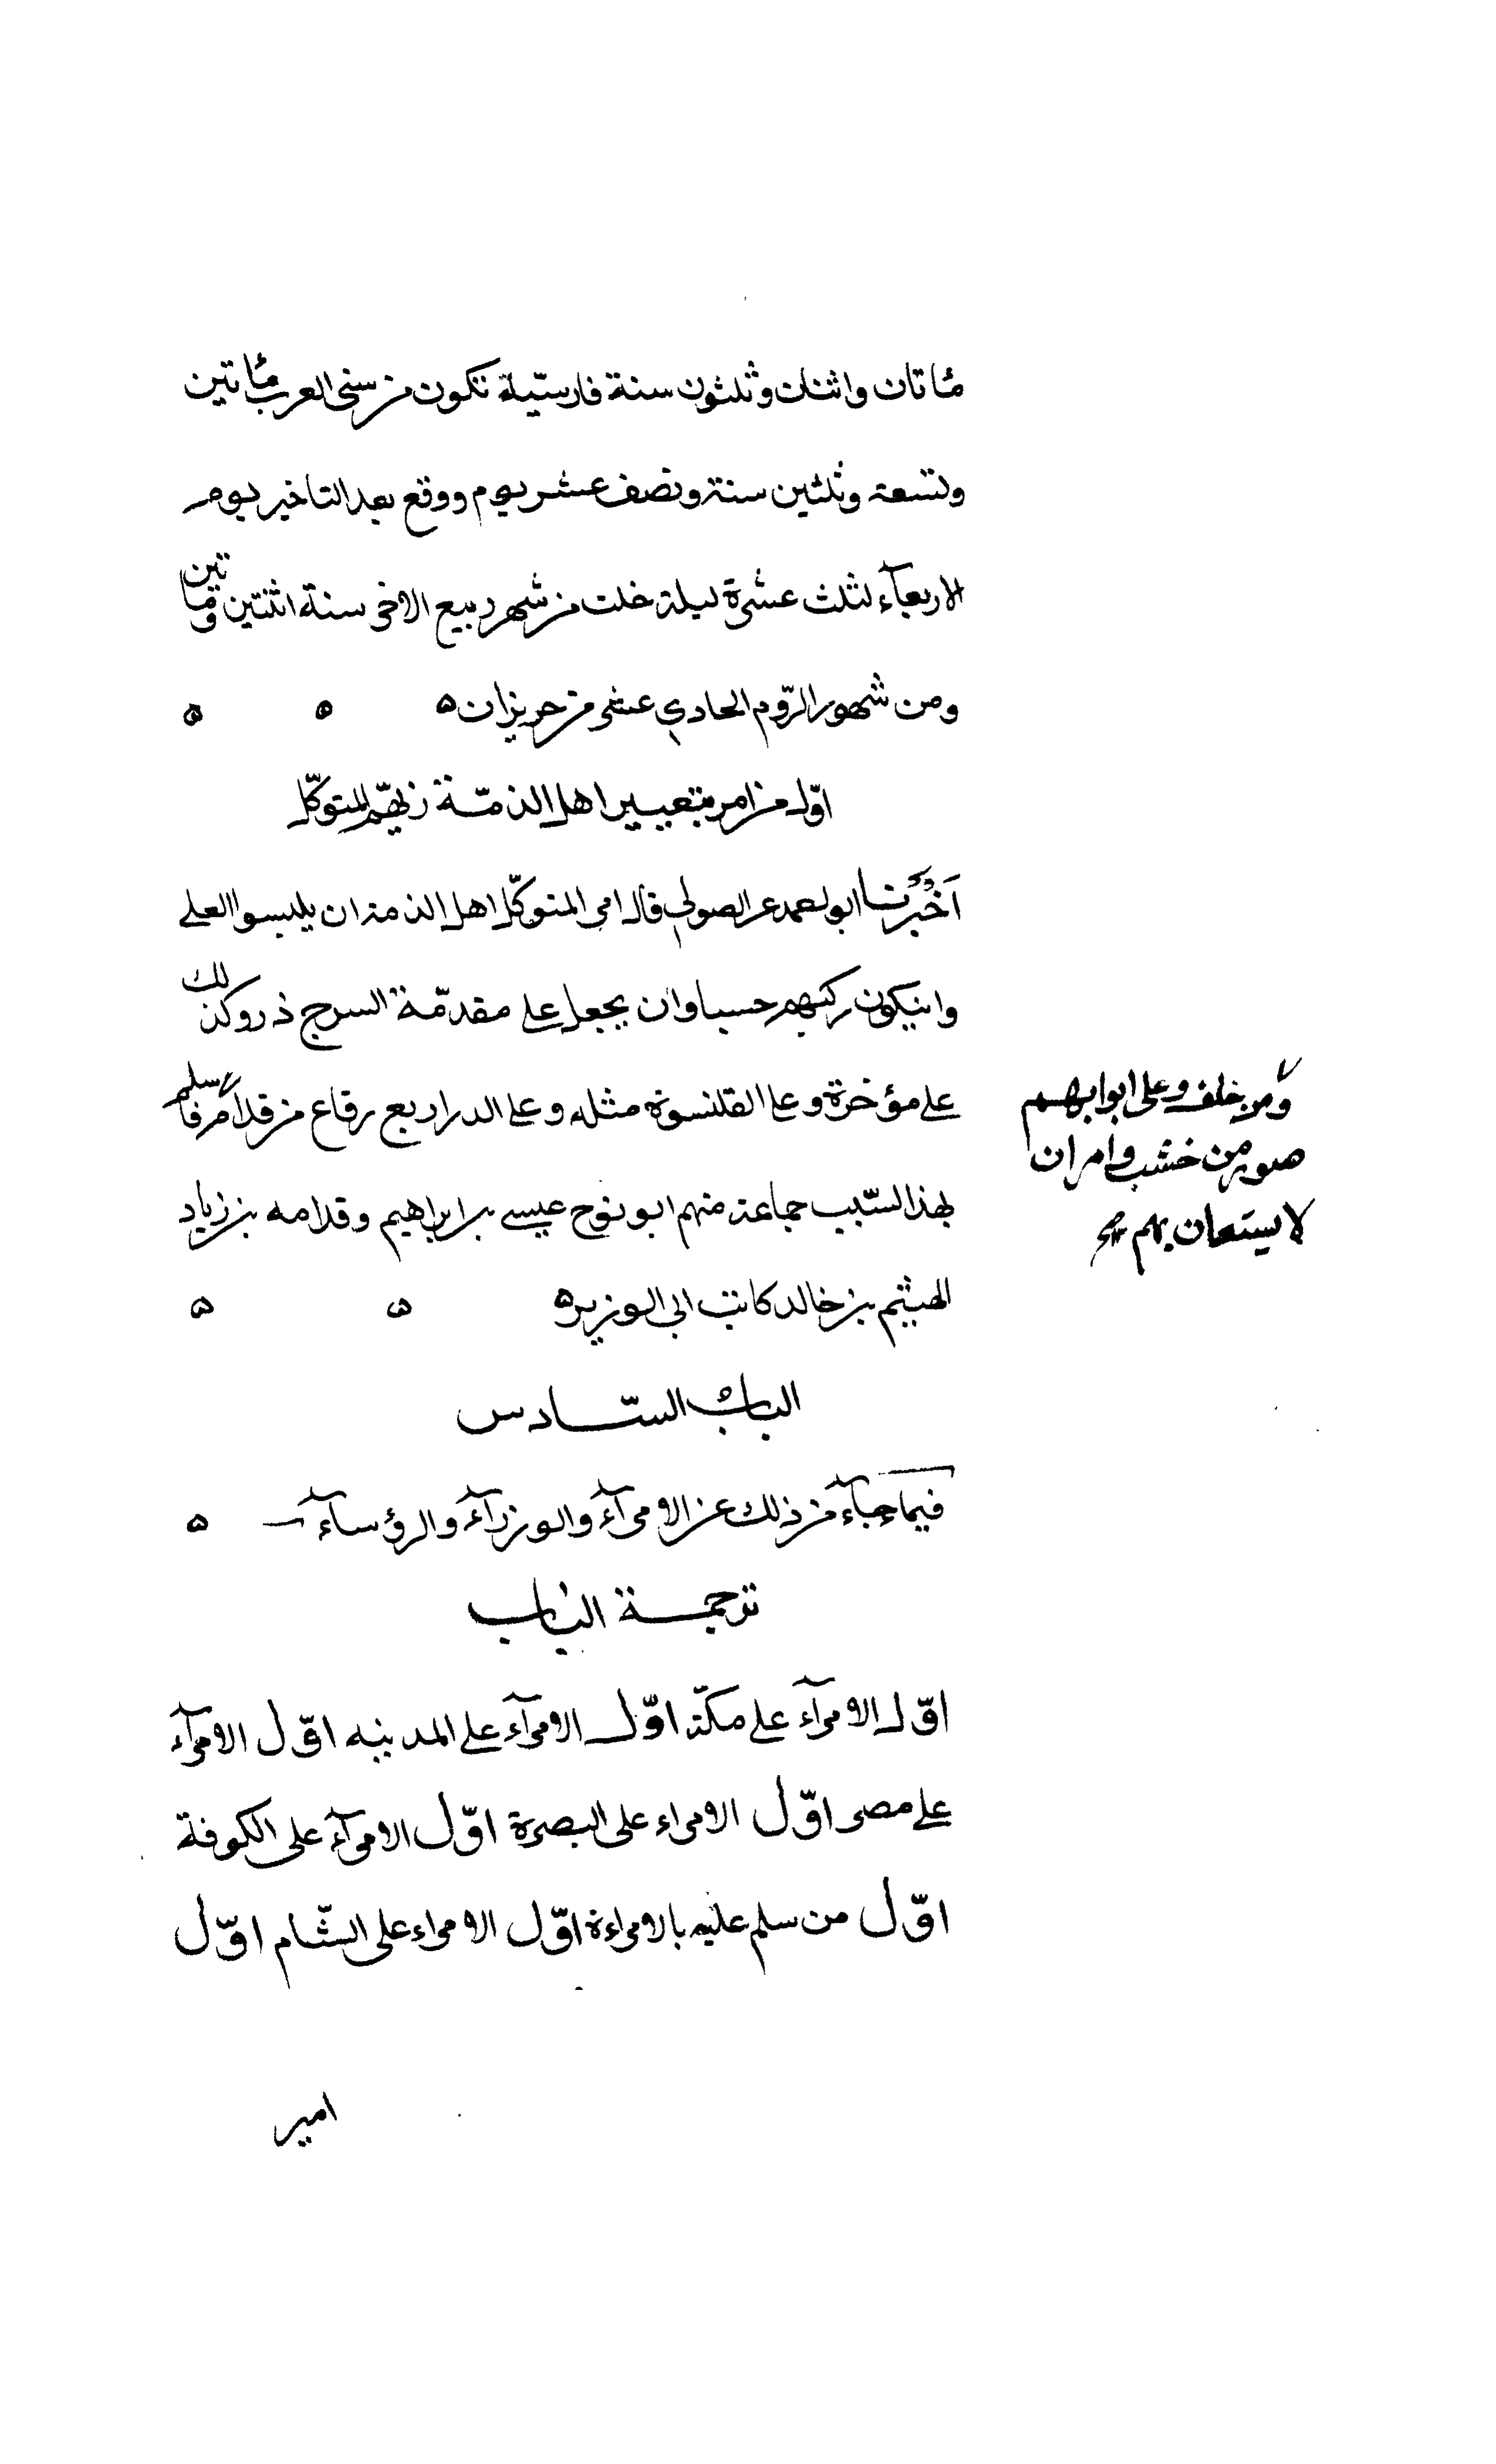 مئاتان واثنان وثلثون سنة فارسيّة تكون من سني العرب مئاتين
وتسعة وثلثين سنة ونصف عشر يوم ووقع بعد التاخير يوم
الاربعآء لثلث عشرة ليلة خلت من شهر ربيع الاخر سنة اثنتين ومئاتين
ومن شهور الرّوم الحادي عشر من حزيران ه ه ه
اوّل من امر بتغيير اهل الذمّة زيّهم المتوكّل
اَخْبَرَنا ابو احمد عن الصولي قال امر المتوكّل اهل الذمة ان يلبسوا العلي
وان يكون ركبهم حسبا وان يجعل على مقدّمة السرج ذر وكذلك
على مؤخرة وعلى القلنسوة مثله وعلى الدراربع رقاع من قدام فاسلم
ومن خلف وعلى ابوابهم
صور من خشب وامر ان
لا يستعان بهم صح
بهذا السّبب جماعة منهم ابو نوح عيسى بن ابراهيم وقدامه بن زياد
الهيثم بن خالد كاتب ابي الوزير ه ه ه
الباب السّادس
فيما جآء من ذلك عن الامرآء والوزرآء والرؤسآء ه
ترجمة الباب
اوّل الامرآء على مكّة اوّل الامرآء على المدينه اوّل الامرآء
على مصر اوّل الامراء على البصرة اوّل الامرآء على الكوفة
اوّل من سلم عليه بالامراءة اوّل الامراء على الشّام اوّل
امير